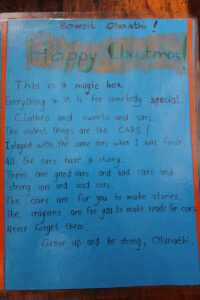 Bowzib Olunathi!
Happy Christmas!
This is a magic box.
Everything in it is for somebody special.
Clothes and sweets and cars.
The coolest things are the CARS!
I played with the same cars when I was
All the cars have a story.
There are good cars and bad cars and
strong cars and sad cars.
The cars are for you to make stories.
The crayons are for you to make roads for cars.
Never forget them.
Grow up and be strong, Olunathi.